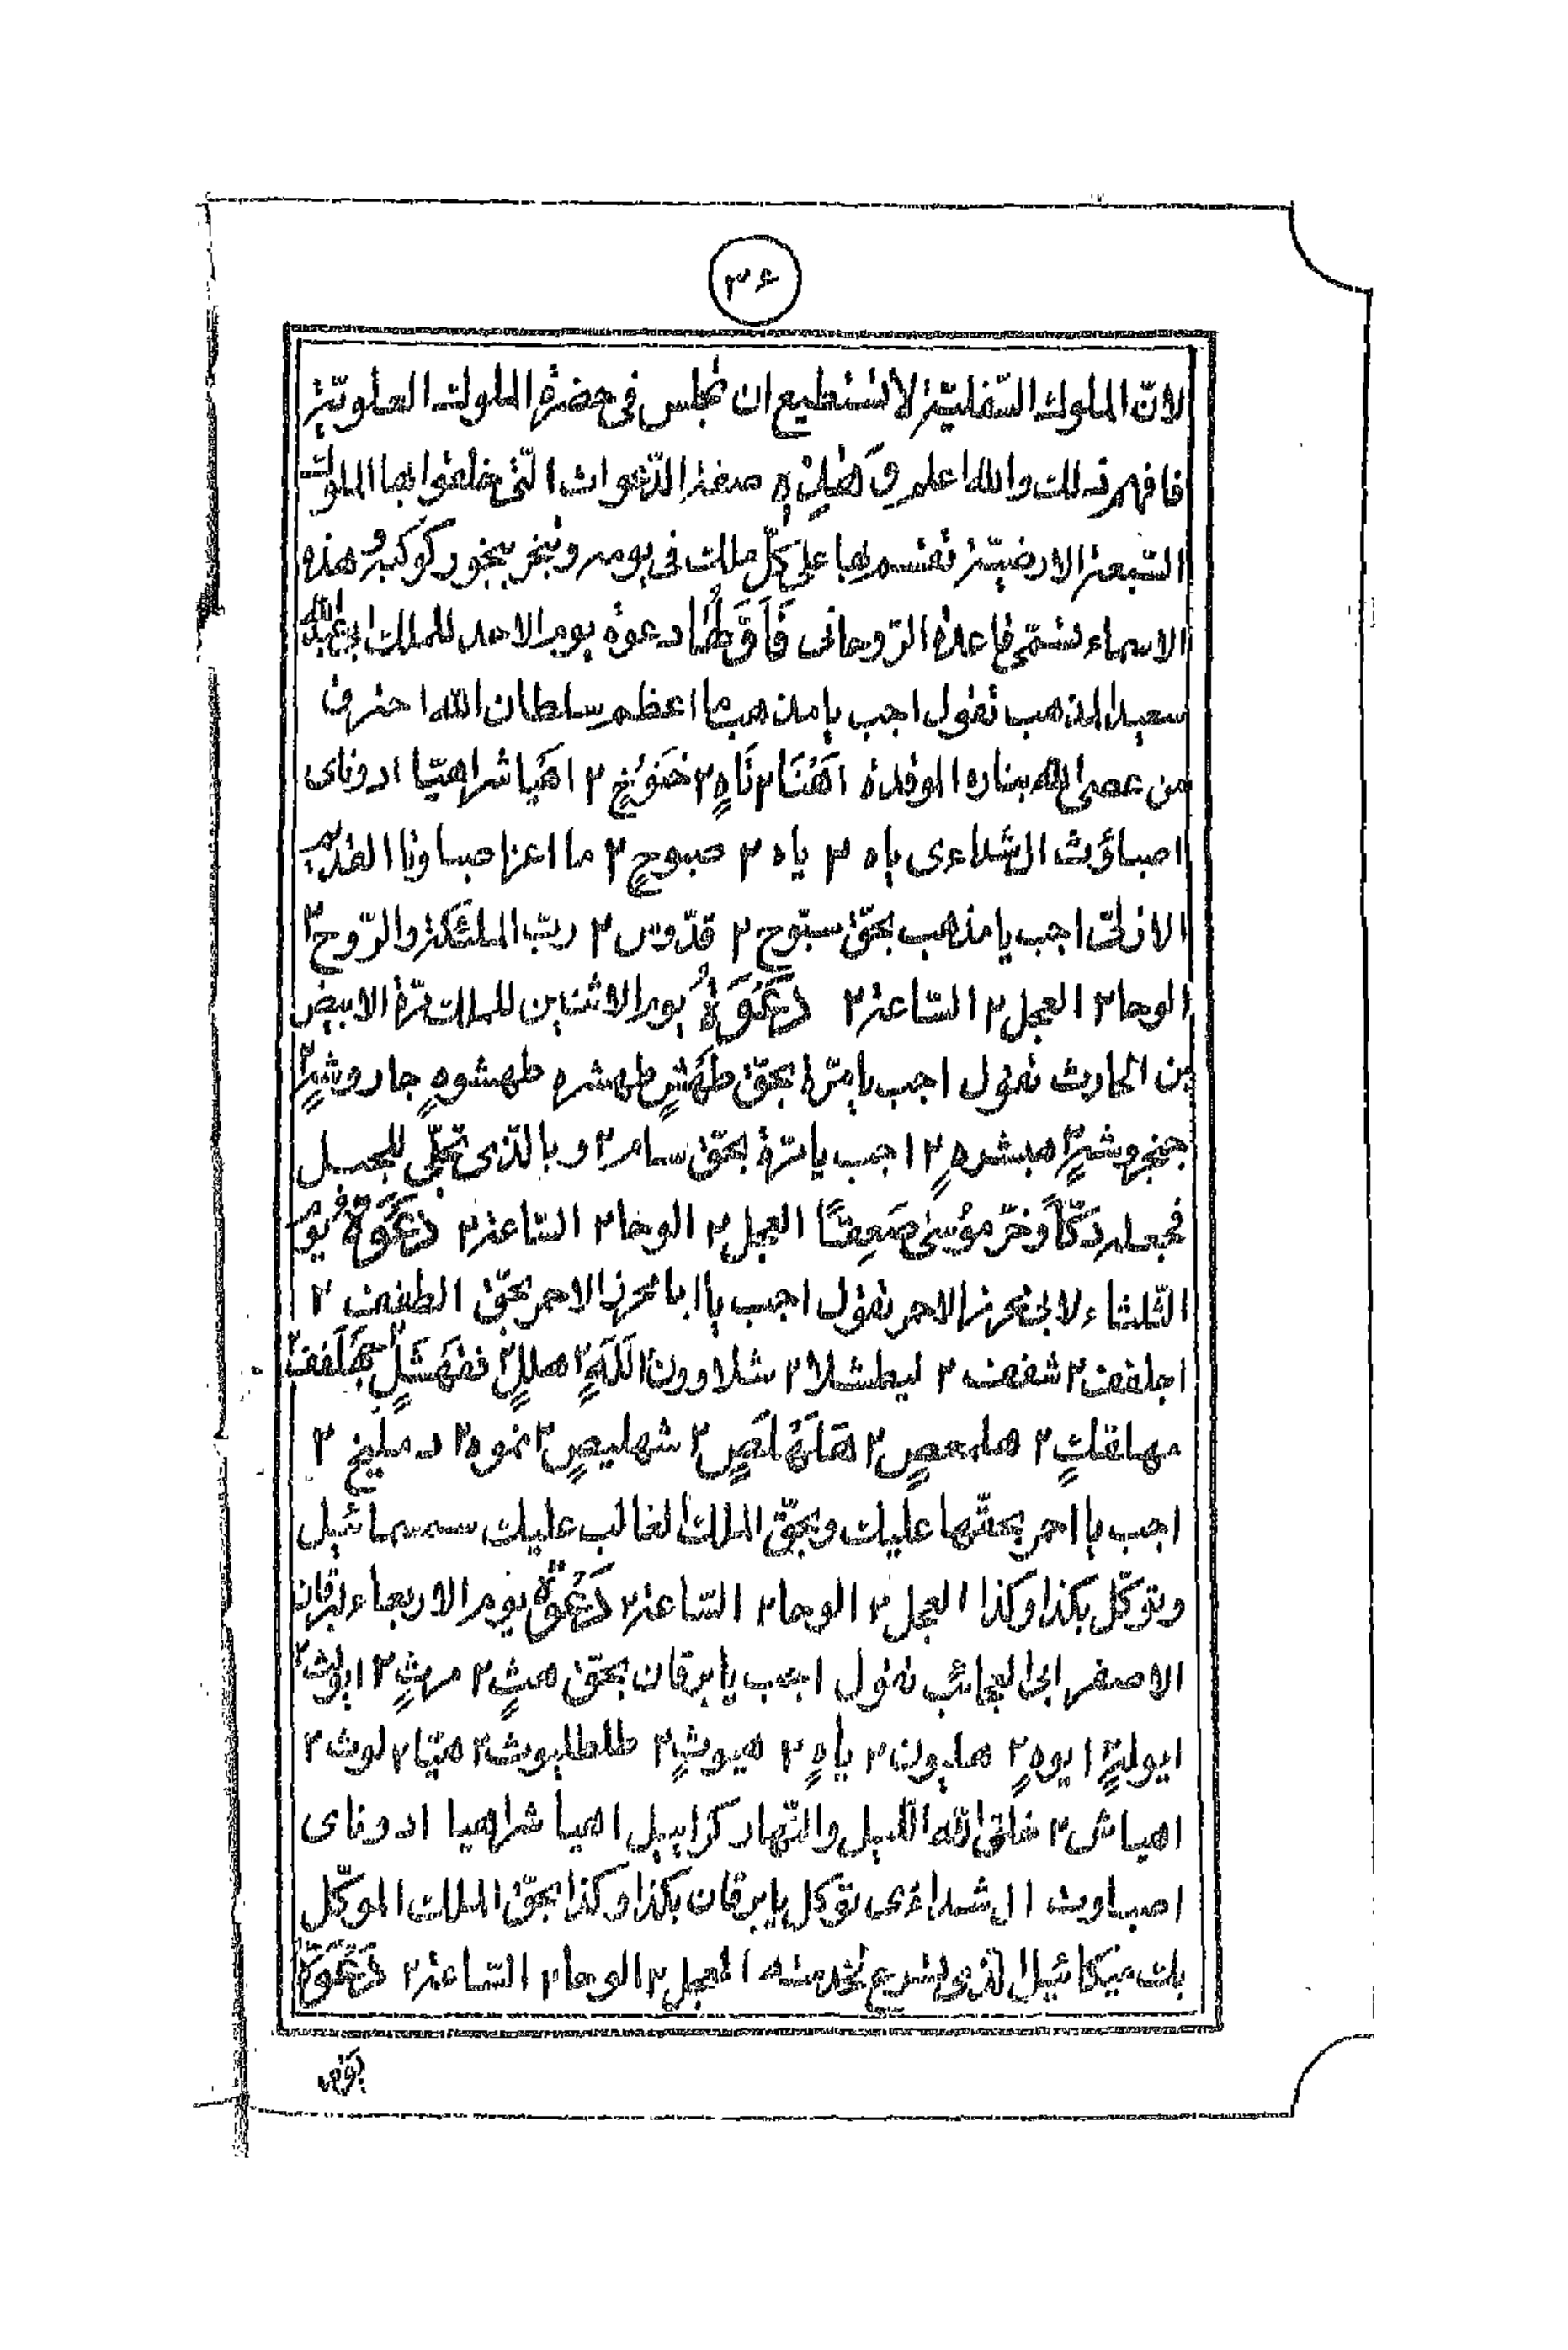 ۳۶
لانّ الملوك السّفليّة لا تستطيع ان تجلس فى حضرة الملوك العلويّة
فافهم ذلك والله اعلم وَهٰذِهِ صفة الدّعوات الّتى خلفوا بها الملوك
السّبعة الارضيّة تقسم بها على كلّ ملك فى يومه وتبخر ببخور كوكبه وهذه
الاسماء تسمّى قاعدة الرّوحانى فَاَوَّلهُا دعوة يوم الاحد للملك ابى عبد الله
سعيد المذهب تقول اجب يا مذهب ما اعظم سلطان الله احترق
من عصى الله بناره الموقدة اَهْنَا ۲ نَاهٍ ۲ خَنوُخٍ ۲ اهَيا شراهيّا ادوناى
اصباؤث ال شداءى ياه ۳ ياه ۲ صبوحٍ ۲ ما اعز اصباونا القديم
الازلىّ اجب يا مذهب بحقّ سبّوح ۲ قدّوس ۲ ربّ الملئكة والرّوح ۲
الوحا ۲ العجل ۲ السّاعة ۲ دَعْوَةُ يوم الاثنين للملك مرّة الابيض
بن الحارث تقول اجب يا مرّة بحقّ طَهَشٍ طهشره طهشوهٍ جاروشٍ ۲
جنجروشٍ ۲ هبشرهٍ ۲ اجب يا مرّة بحقّ سامر ۲ و بالّذى تجلّى للجبل
فجعله دكّاً وَخرّ موُسىٰ صَعِقاً العجل ۲ الوحا ۲ السّاعة ۲ دَعْوَةُ يوم
الثّلثاء لابى محرز الاحمر تقول اجب يا ابا محرز الاحمر بحقّ الطفعف ۲
اجلفف ۲ شفعف ۲ ليطشلا ۲ شلاوون اَللَهٍ ۲ هللٍ ۲
مهلقتٍ ۲ هلمعصٍ ۲ هَلَهْلَصٍ ۲ شهليصٍ ۲ نموه ۲ دمليخٍ ۲
اجب يا احمر بحقّها عليك وبحقّ الملك الغالب عليك سمسمائيل
وتوكّل بكذا وكذا العجل ۲ الوحا ۲ السّاعة ۲ دَعْوَةُ يوم الاربعاء لبرقان
الاصفر ابى العجائب تقول اجب يا برقان بحقّ هثٍ ۲ مرثٍ ۲ ايوث ۲
ايولهٍ ۲ ايوهٍ ۲ هليون ۲ ياهٍ ۲ هيوثٍ ۲ طلطليوث ۲ هيّا ۲ لوث ۲
اهياش ۲ خالق الله اللّيل والنّهار كراييل اهيا شراهيا ادوناى
اصباوث ال شداءى توكل يا برقان بكذا وكذا بحقّ الملك الموكّل
بك ميكائيل الّذى تسرع لخدمته العجل ۲ الوحا ۲ السّاعة ۲ دَعْوَةُ
يوم